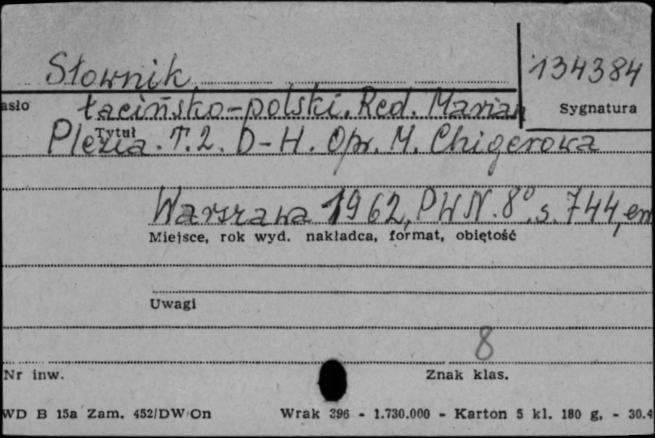 Słownik
134384
asło
łacińsko-polski. Red. Marian
Sygnatura
Tytuł
Plezia. T. 2. D-H. Opr. M. Chigerowa
Warszawa 1962, PWN. 8°, s. 744, en
Miejsce, rok wyd. nakładca, format, obiętość
Uwagi
8
Nr inw.
Znak klas.
WD B 15a Zam. 452/DW On
Wrak 396 - 1.730.000 - Karton 5 kl. 180 g, - 30.4